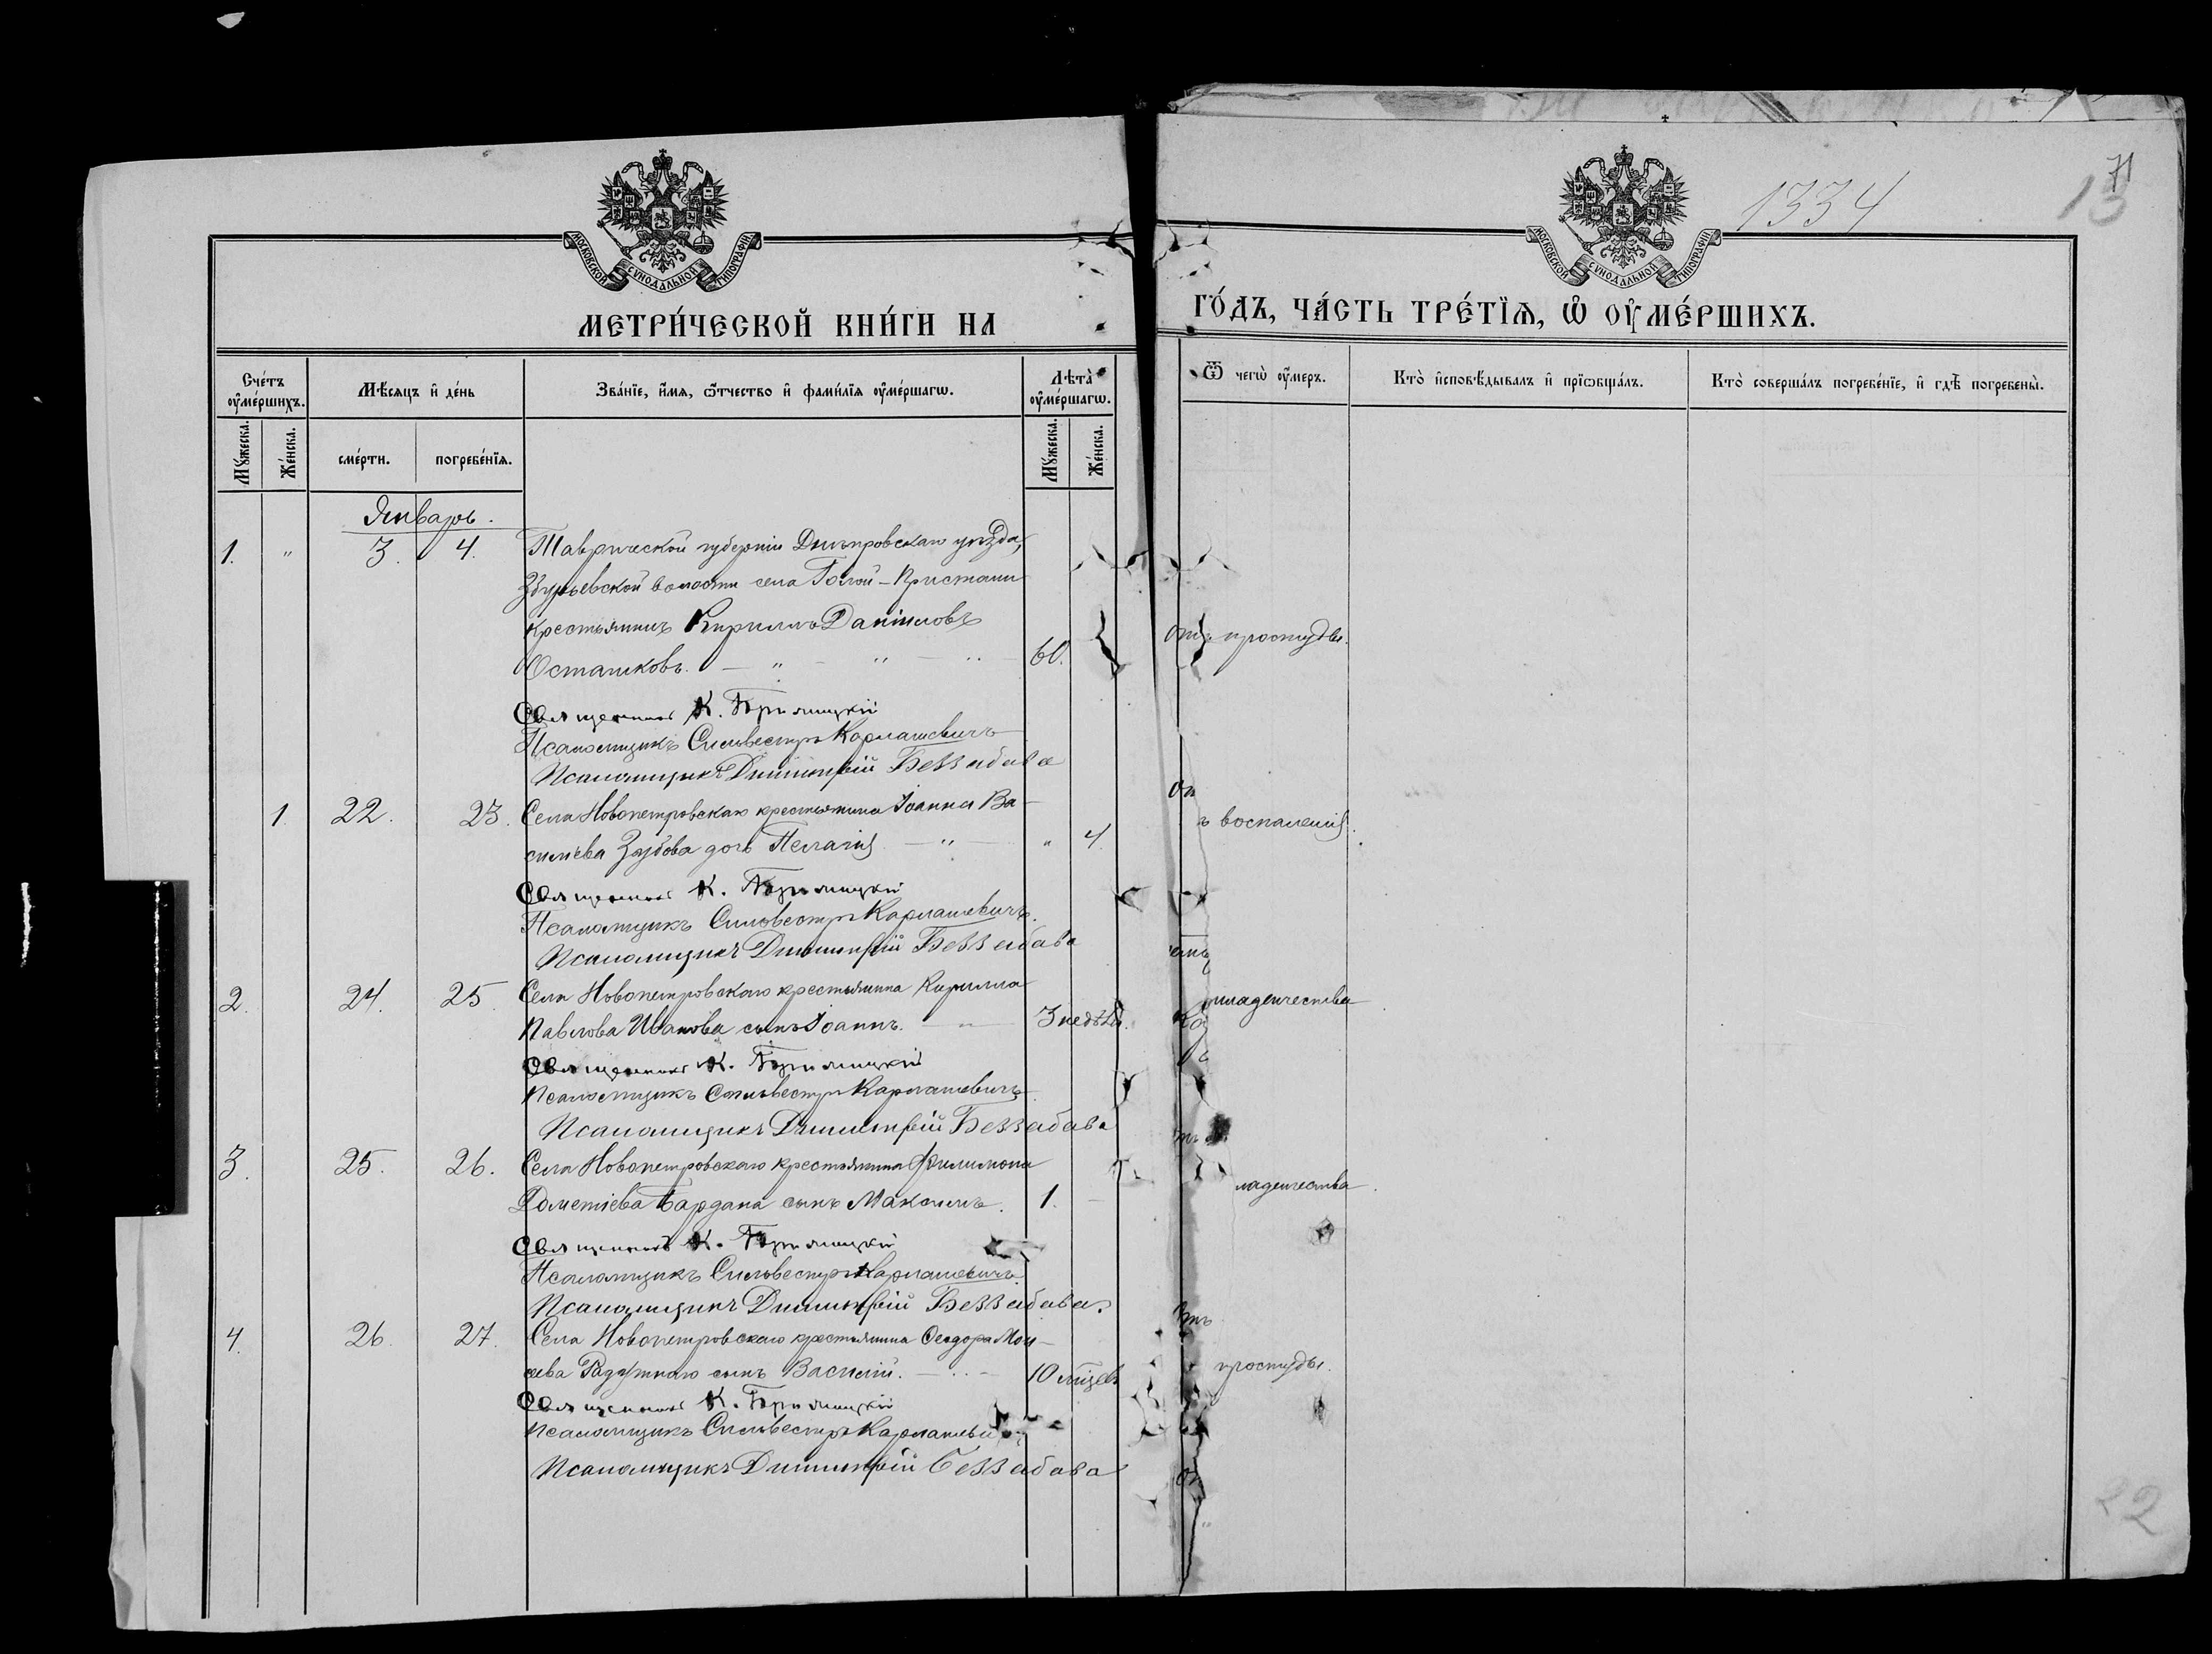 1334
71
13
МОСКОВСКОЙ СѴНОДАЛЬНОЙ ТИПОГРАФІИ
МОСКОВСКОЙ СѴНОДАЛЬНОЙ ТИПОГРАФІИ
МЕТРИ́ЧЕСКОЙ КНИ́ГИ НА
ГО́ДЪ, ЧА́СТЬ ТРЕ́ТЇѦ, Ѡ҆ ОУ҆МЕ́РШИХЪ.
Сче́тъ оу҆ме́ршихъ.
Мѣ́сяцъ и҆ де́нь
Зва́нїе, и҆́мѧ, ѻ҆́тчество и҆ фами́лїѧ оу҆ме́ршагѡ.
Лѣта̀ оу҆ме́ршагѡ.
Ѿ чегѡ̀ оу҆́меръ.
Кто̀ и҆сповѣ́дывалъ и҆ прїѡбща́лъ.
Кто̀ соверша́лъ погребе́нїе, и҆ гдѣ̀ погребены̀.
Мꙋ́жеска.
Же́нска.
сме́рти.
погребе́нїѧ.
Мꙋ́жеска.
Же́нска.
Январь.
1. " 3. 4. Таврической губерніи Днѣпровскаго уѣзда,
Збурьевской волости села Голой-Пристани
крестьянинъ Кириллъ Даніиловъ
Осташковъ. — " — " — " 60. отъ простуды.
Священникъ К.
Псаломщикъ Сильвестръ Кармашевичъ
Псаломщикъ Димитрій Беззабава
1. 22. 23. Села Новопетровскаго крестьянина Іоанна Ва-
сильева Зяубова дочь Пелагія — " — " 4. отъ воспаленія.
Священникъ К.
Псаломщикъ Сильвестръ Кармашевичъ.
Псаломщикъ Димитрій Беззабава
2. 24. 25. Села Новопетровскаго крестьянина Кирилла
Павлова Иванова сынъ Іоаннъ. — " — 3 недѣль. младенчества
Священникъ К.
Псаломщикъ Сильвестръ Кармашевичъ
Псаломщикъ Димитрій Беззабава
3. 25. 26. Села Новопетровскаго крестьянина Филимона
Дометіева Бардана сынъ Максимъ. 1. — ладенчества.
Священникъ К.
Псаломщикъ Сильвестръ Кармашевичъ
Псаломщикъ Димитрій Беззабава.
4. 26. 27. Села Новопетровскаго крестьянина Ѳеодора Мои-
сеева сынъ Василій. — " — 10 мѣсяц. простуды.
Священникъ К.
Псаломщикъ Сильвестръ Кармашеви
Псаломщикъ Димитрій Беззабава
22